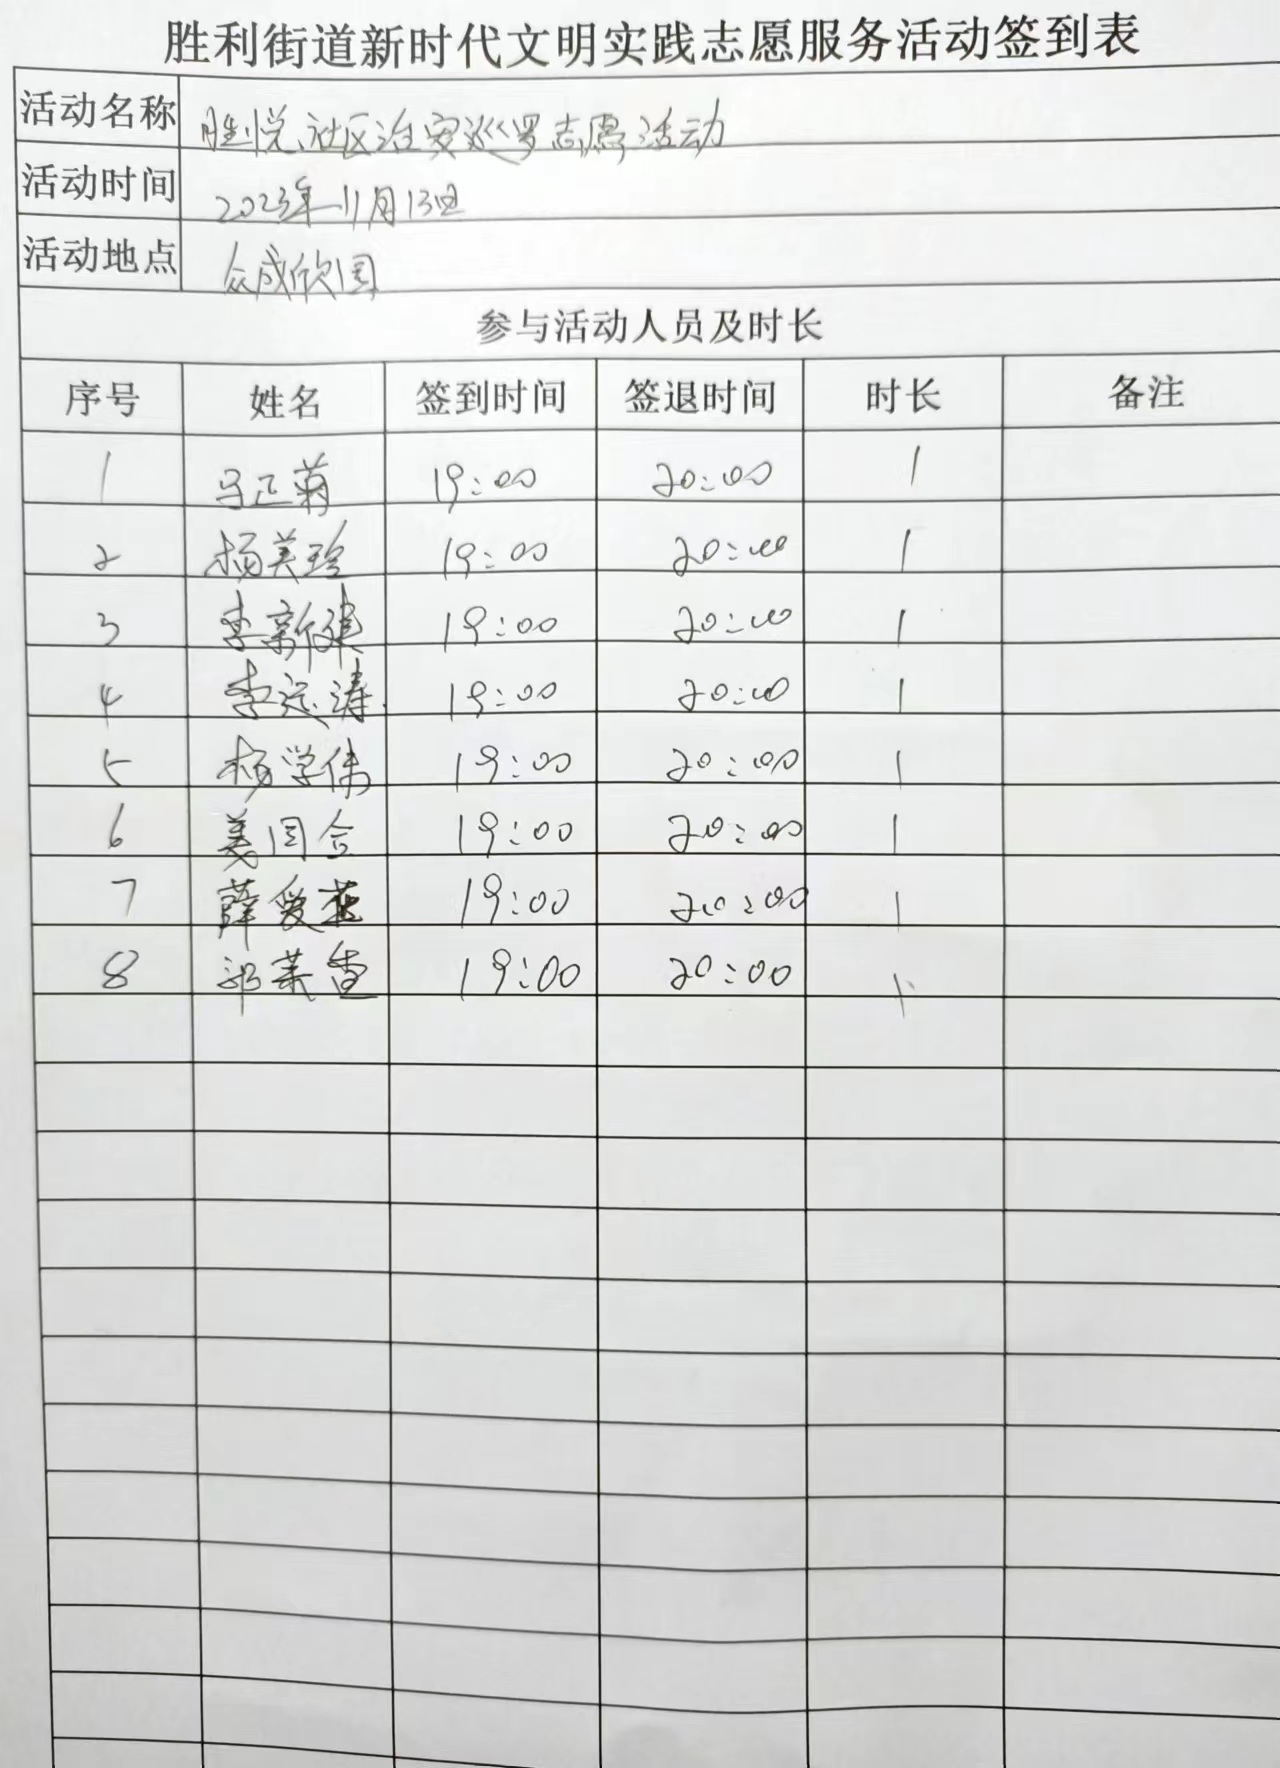 胜利街道新时代文明实践志愿服务活动签到表
活动名称 胜悦社区治安巡罗志愿活动
活动时间 2023年11月13日
活动地点 众成欣园
参与活动人员及时长
序号 姓名 签到时间 签退时间 时长 备注
1 马正菊 19:00 20:00 1
2 杨美玲 19:00 20:00 1
3 李新健 19:00 20:00 1
4 李远涛 19:00 20:00 1
5 杨学伟 19:00 20:00 1
6 姜国合 19:00 20:00 1
7 薛爱 19:00 20:00 1
8 郭 19:00 20:00 1